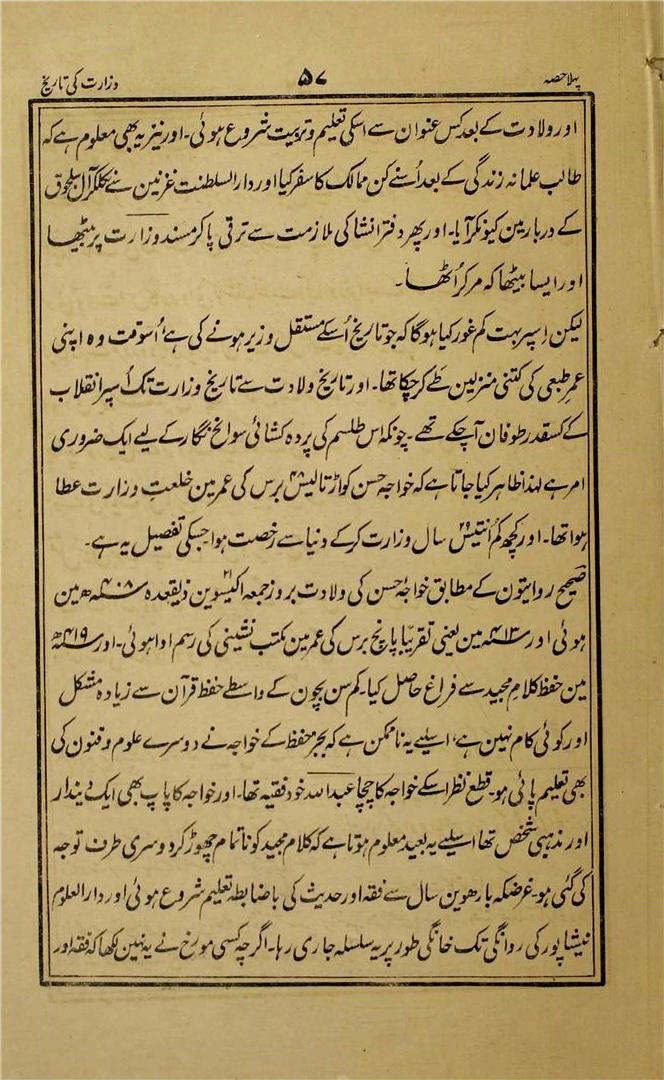 پہلا حصہ ۵۷ وزارت کی تاریخ
اور ولادت کے بعد کس عنوان سے اسکی تعلیم و تربیت شروع ہوئی۔ اور نیز یہ بھی معلوم ہے کہ
طالب علمانہ زندگی کے بعد اُسنے کن ممالک کا سفر کیا اور دار السلطنت غزنین سے نکلکر آل سلجوق
کے دربار مین کیونکر آیا۔ اور پھر دفتر انشا کی ملازمت سے ترقی پا کر مسند وزارت پر بیٹھا
اور ایسا بیٹھا کہ مر کر اُٹھا۔
لیکن اِسپر بہت کم غور کیا ہوگا کہ جو تاریخ اُسکے مستقل وزیر ہونے کی ہے، اُسوقت وہ اپنی
عمر طبعی کی کتنی منزلین طے کر چکا تھا۔ اور تاریخ ولادت سے تاریخ وزارت تک اُسپر انقلاب
کے کسقدر طوفان آچکے تھے۔ چونکہ اس طلسم کی پردہ کشائی سوانح نگار کے لیے ایک ضروری
امر ہے لہذا ظاہر کیا جاتا ہے کہ خواجہ حسن کو اڑتالیس ۴۸ برس کی عمر مین خلعتِ وزارت عطا
ہوا تھا۔ اور کچھ کم اُنتیس ۲۹ سال وزارت کر کے دنیا سے رخصت ہوا جسکی تفصیل یہ ہے۔
صحیح روایتون کے مطابق خواجہ حسن کی ولادت بروز جمعہ اکیسوین ۲۱ ذیقعدہ ۴۰۸ھ مین
ہوئی اور ۴۱۳ھ مین یعنی تقریباً پانچ برس کی عمر مین مکتب نشینی کی رسم ادا ہوئی۔ اور ۴۱۹ھ
مین حفظ کلام مجید سے فراغ حاصل کیا۔ کم سن بچون کے واسطے حفظ قرآن سے زیادہ مشکل
اور کوئی کام نہین ہے، اسلیے یہ ناممکن ہے کہ بجز حفظ کے خواجہ نے دوسرے علوم و فنون کی
بھی تعلیم پائی ہو۔ قطع نظر اسکے خواجہ کا چچا عبداللہ خود فقیہ تھا۔ اور خواجہ کا باپ بھی ایک دیندار
اور مذہبی شخص تھا اسلیے یہ بعید معلوم ہوتا ہے کہ کلام مجید کو ناتمام چھوڑ کر دوسری طرف توجہ
کی گئی ہو۔ غرضکہ بارھوین سال سے فقہ اور حدیث کی باضابطہ تعلیم شروع ہوئی اور دار العلوم
نیشاپور کی روانگی تک خانگی طور پر یہ سلسلہ جاری رہا۔ اگرچہ کسی مورخ نے یہ نہین لکھا کہ فقہ اور